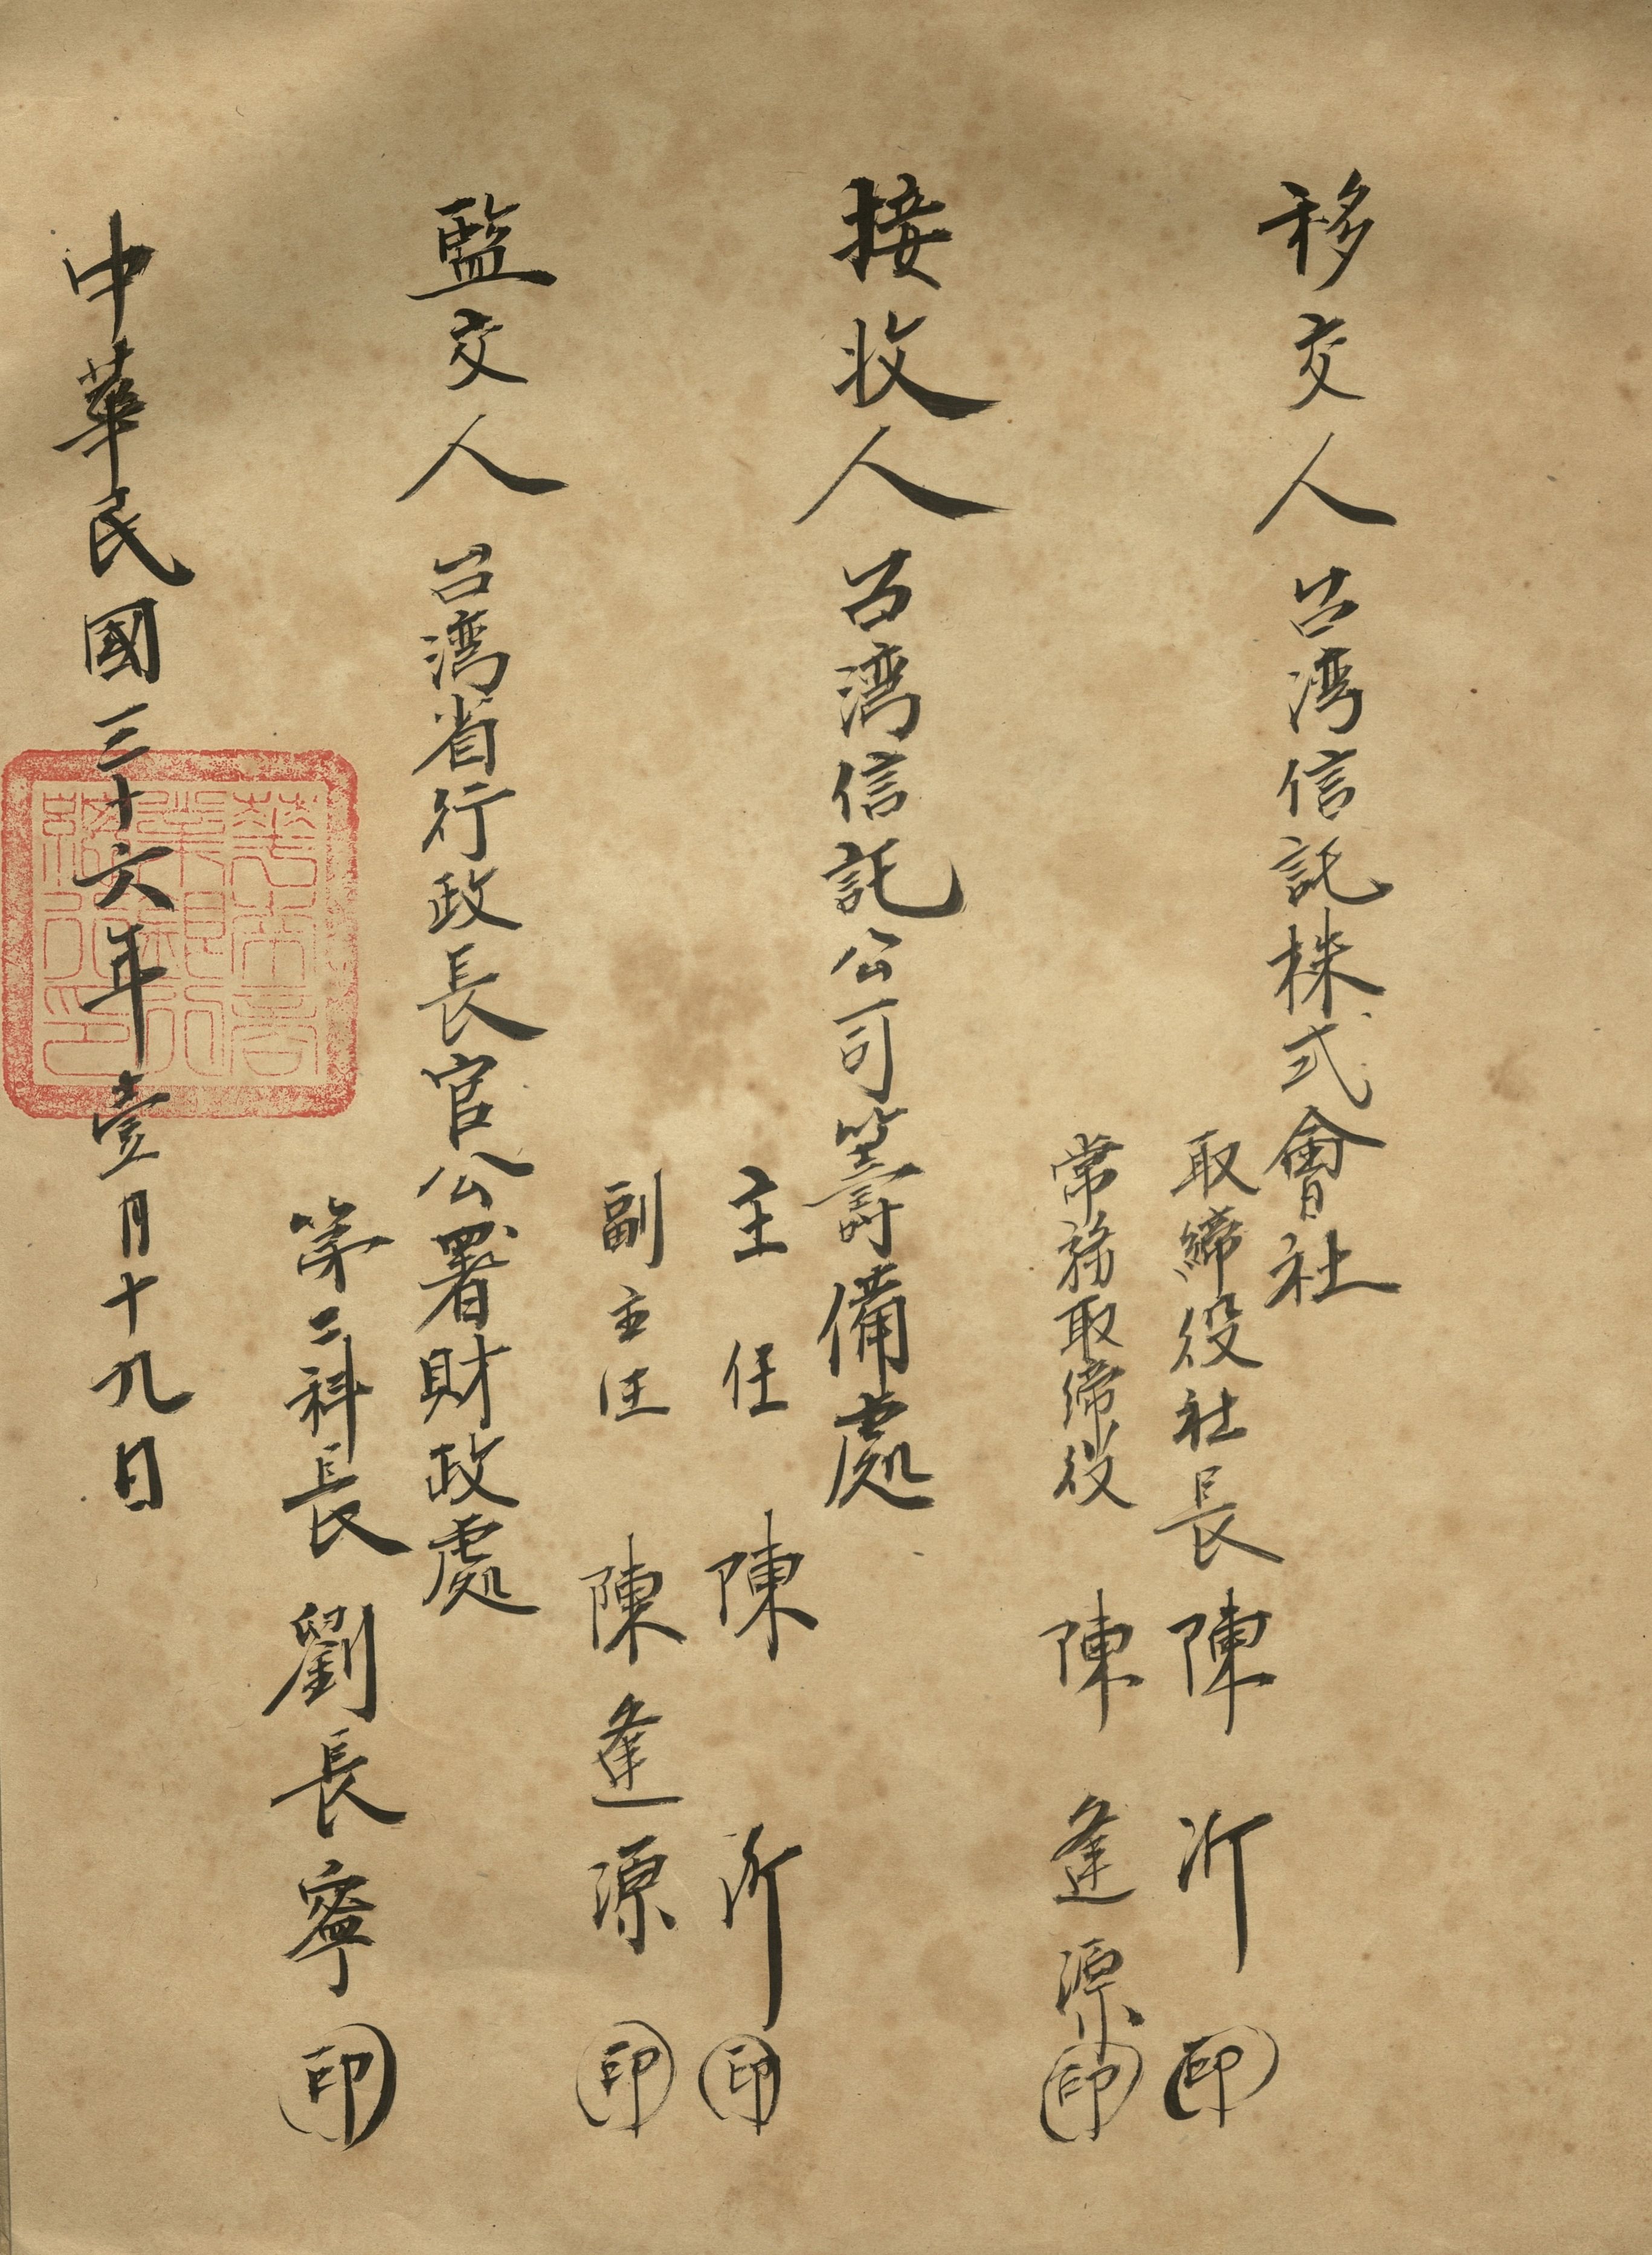 移交人 台湾信託株式會社
取締役社長 陳 沂 ㊞
常務取締役 陳 逢源 ㊞
接收人 台湾信託公司籌備處
主任 陳 沂 ㊞
副主任 陳逢源 ㊞
監交人 台湾省行政長官公署財政處
第二科長 劉長寧 ㊞
中華民國三十六年壹月十九日
華南商
業銀行
總行印